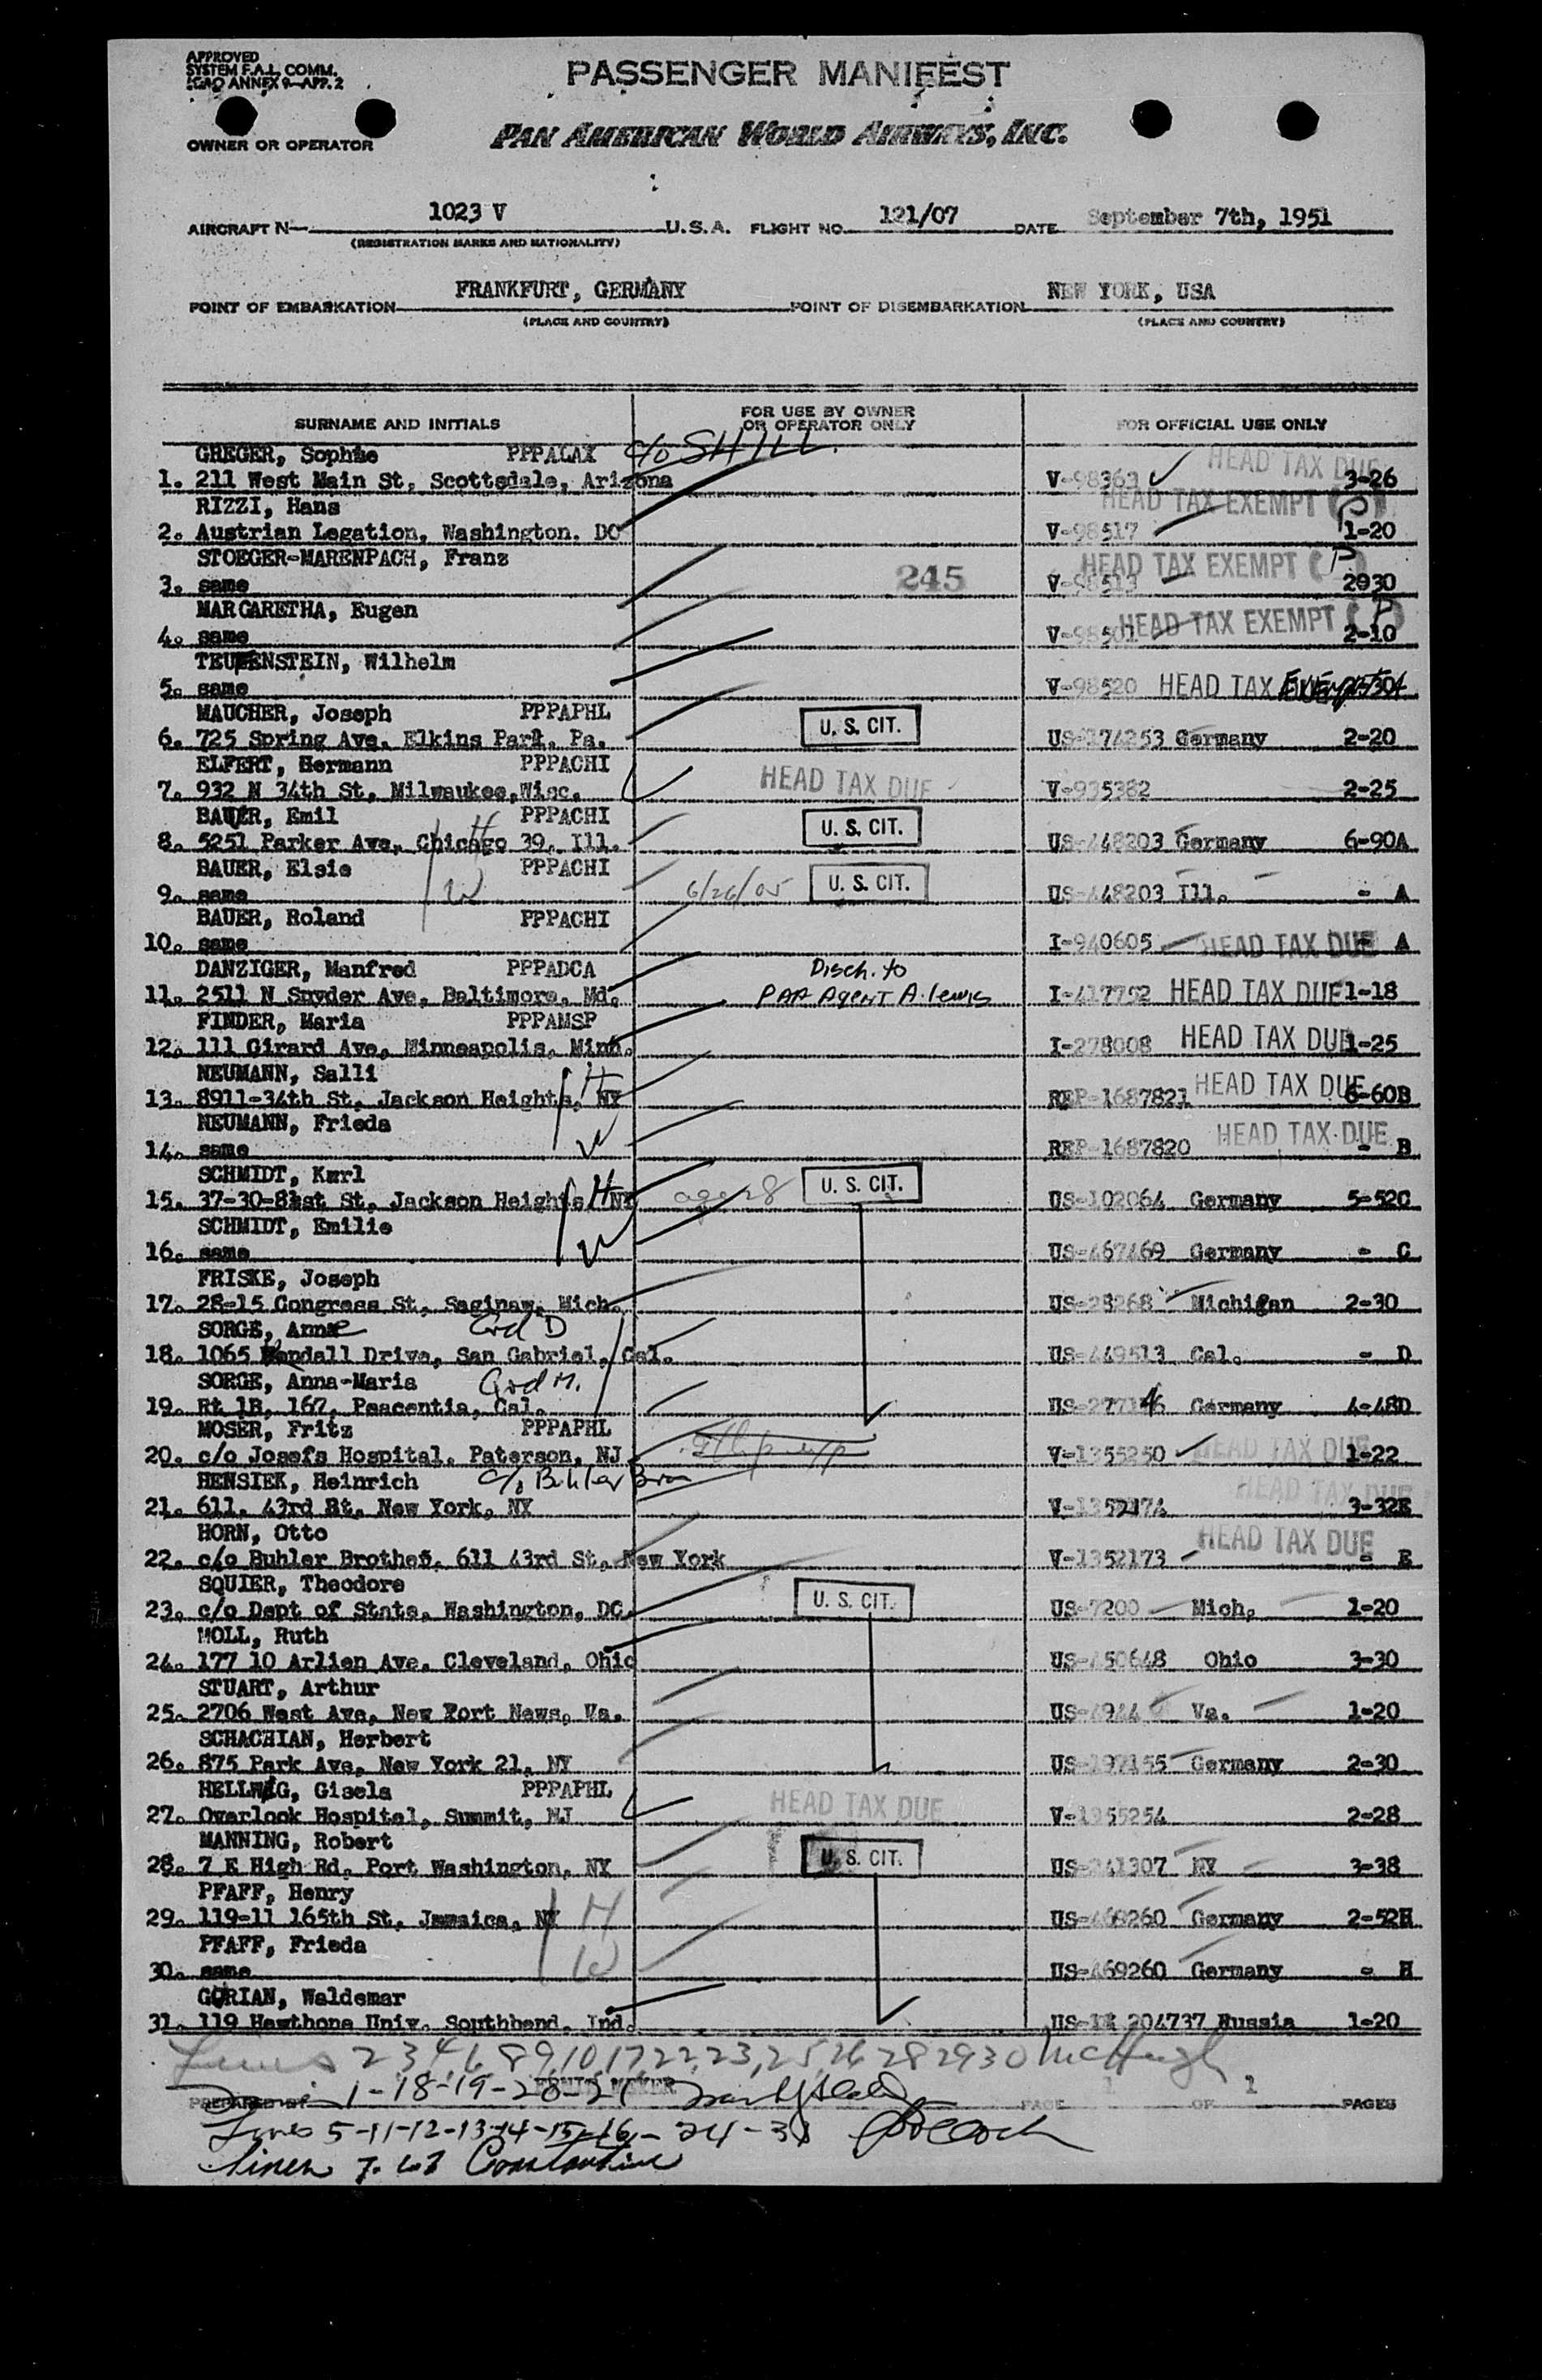 APPROVED
SYSTEM F.A.L. COMM.
ICAO ANNEX 9—APP. 2
PASSENGER MANIFEST
OWNER OR OPERATOR
PAN AMERICAN WORLD AIRWAYS, INC.
AIRCRAFT N 1023 V U.S.A. FLIGHT NO. 121/07 DATE September 7th, 1951
(REGISTRATION MARKS AND NATIONALITY)
POINT OF EMBARKATION FRANKFURT, GERMANY POINT OF DISEMBARKATION NEW YORK, USA
(PLACE AND COUNTRY) (PLACE AND COUNTRY)
SURNAME AND INITIALS FOR USE BY OWNER OR OPERATOR ONLY FOR OFFICIAL USE ONLY
GREGER, Sophie PPPALAX c/o SHILL. HEAD TAX DUE
1. 211 West Main St, Scottsdale, Arizona V-98363 3-26
RIZZI, Hans HEAD TAX EXEMPT (P)
2. Austrian Legation, Washington. DC V-98517 1-20
STOEGER-MARENPACH, Franz HEAD TAX EXEMPT (P)
3. same 245 V-98513 2930
MARGARETHA, Eugen HEAD TAX EXEMPT (P)
4. same V-98501 2-10
TEUFENSTEIN, Wilhelm
5. same V-98520 HEAD TAX Exempt
MAUCHER, Joseph PPPAPHL U. S. CIT.
6. 725 Spring Ave, Elkins Park, Pa. US-174253 Germany 2-20
ELFERT, Hermann PPPACHI HEAD TAX DUE
7. 932 N 34th St, Milwaukee, Wisc. V-935382 2-25
BAUER, Emil H PPPACHI U. S. CIT.
8. 5251 Parker Ave, Chicago 39, Ill. US-448203 Germany 6-90A
BAUER, Elsie W PPPACHI 6/26/05 U. S. CIT.
9. same US-448203 Ill. - A
BAUER, Roland PPPACHI
10. same I-940605 HEAD TAX DUE A
DANZIGER, Manfred PPPADCA Disch. to
11. 2511 N Snyder Ave, Baltimore, Md. PAA Agent A. Lewis I-417752 HEAD TAX DUE 1-18
FINDER, Maria PPPAMSP
12. 111 Girard Ave, Minneapolis, Minn. I-278008 HEAD TAX DUE 1-25
NEUMANN, Salli H
13. 8911-34th St, Jackson Heights, NY REP-1687821 HEAD TAX DUE 6-60B
NEUMANN, Frieda W
14. same REP-1687820 HEAD TAX DUE - B
SCHMIDT, Karl H
15. 37-30-81st St, Jackson Heights NY age 28 U. S. CIT. US-102064 Germany 5-52C
SCHMIDT, Emilie W
16. same US-467469 Germany - C
FRISKE, Joseph
17. 28-15 Congress St, Saginaw, Mich. US-28268 Michigan 2-30
SORGE, Anne Grd D
18. 1065 Kendall Drive, San Gabriel, Cal. US-449513 Cal. - D
SORGE, Anna-Maria Grd M.
19. Rt 1B, 167, Paacentia, Cal. US-277146 Germany 4-48D
MOSER, Fritz PPPAPHL
20. c/o Josefs Hospital, Paterson, NJ V-1355250 HEAD TAX DUE 1-22
HENSIEK, Heinrich c/o Buhler Bros HEAD TAX DUE
21. 611, 43rd St, New York, NY V-1352174 3-32E
HORN, Otto HEAD TAX DUE
22. c/o Buhler Brothes, 611 43rd St, New York V-1352173 - E
SQUIER, Theodore U. S. CIT.
23. c/o Dept of State, Washington, DC. US-7200 Mich. 1-20
MOLL, Ruth
24. 177 10 Arlien Ave, Cleveland, Ohio US-450648 Ohio 3-30
STUART, Arthur
25. 2706 West Ave, New Port News, Va. US-4944 Va. 1-20
SCHACHIAN, Herbert
26. 875 Park Ave, New York 21, NY US-197155 Germany 2-30
HELLWIG, Gisela PPPAPHL HEAD TAX DUE
27. Overlook Hospital, Summit, NJ V-1355254 2-28
MANNING, Robert U. S. CIT.
28. 7 E High Rd, Port Washington, NY US-341307 NY 3-38
PFAFF, Henry H
29. 119-11 165th St, Jamaica, NY US-469260 Germany 2-52H
PFAFF, Frieda W
30. same US-469260 Germany - H
GURIAN, Waldemar
31. 119 Hawthone Univ. Southbend, Ind. US-IR 204737 Russia 1-20
Lines 2 3 4, 6 8 9, 10, 17, 22, 23, 25, 26 28 29 30 McHugh
1-18-19-20-21
PREPARED BY PAGE 1 OF 1 PAGES
Lines 5-11-12-13-14-15-16-24-31
Lines 7. 27 Constantine